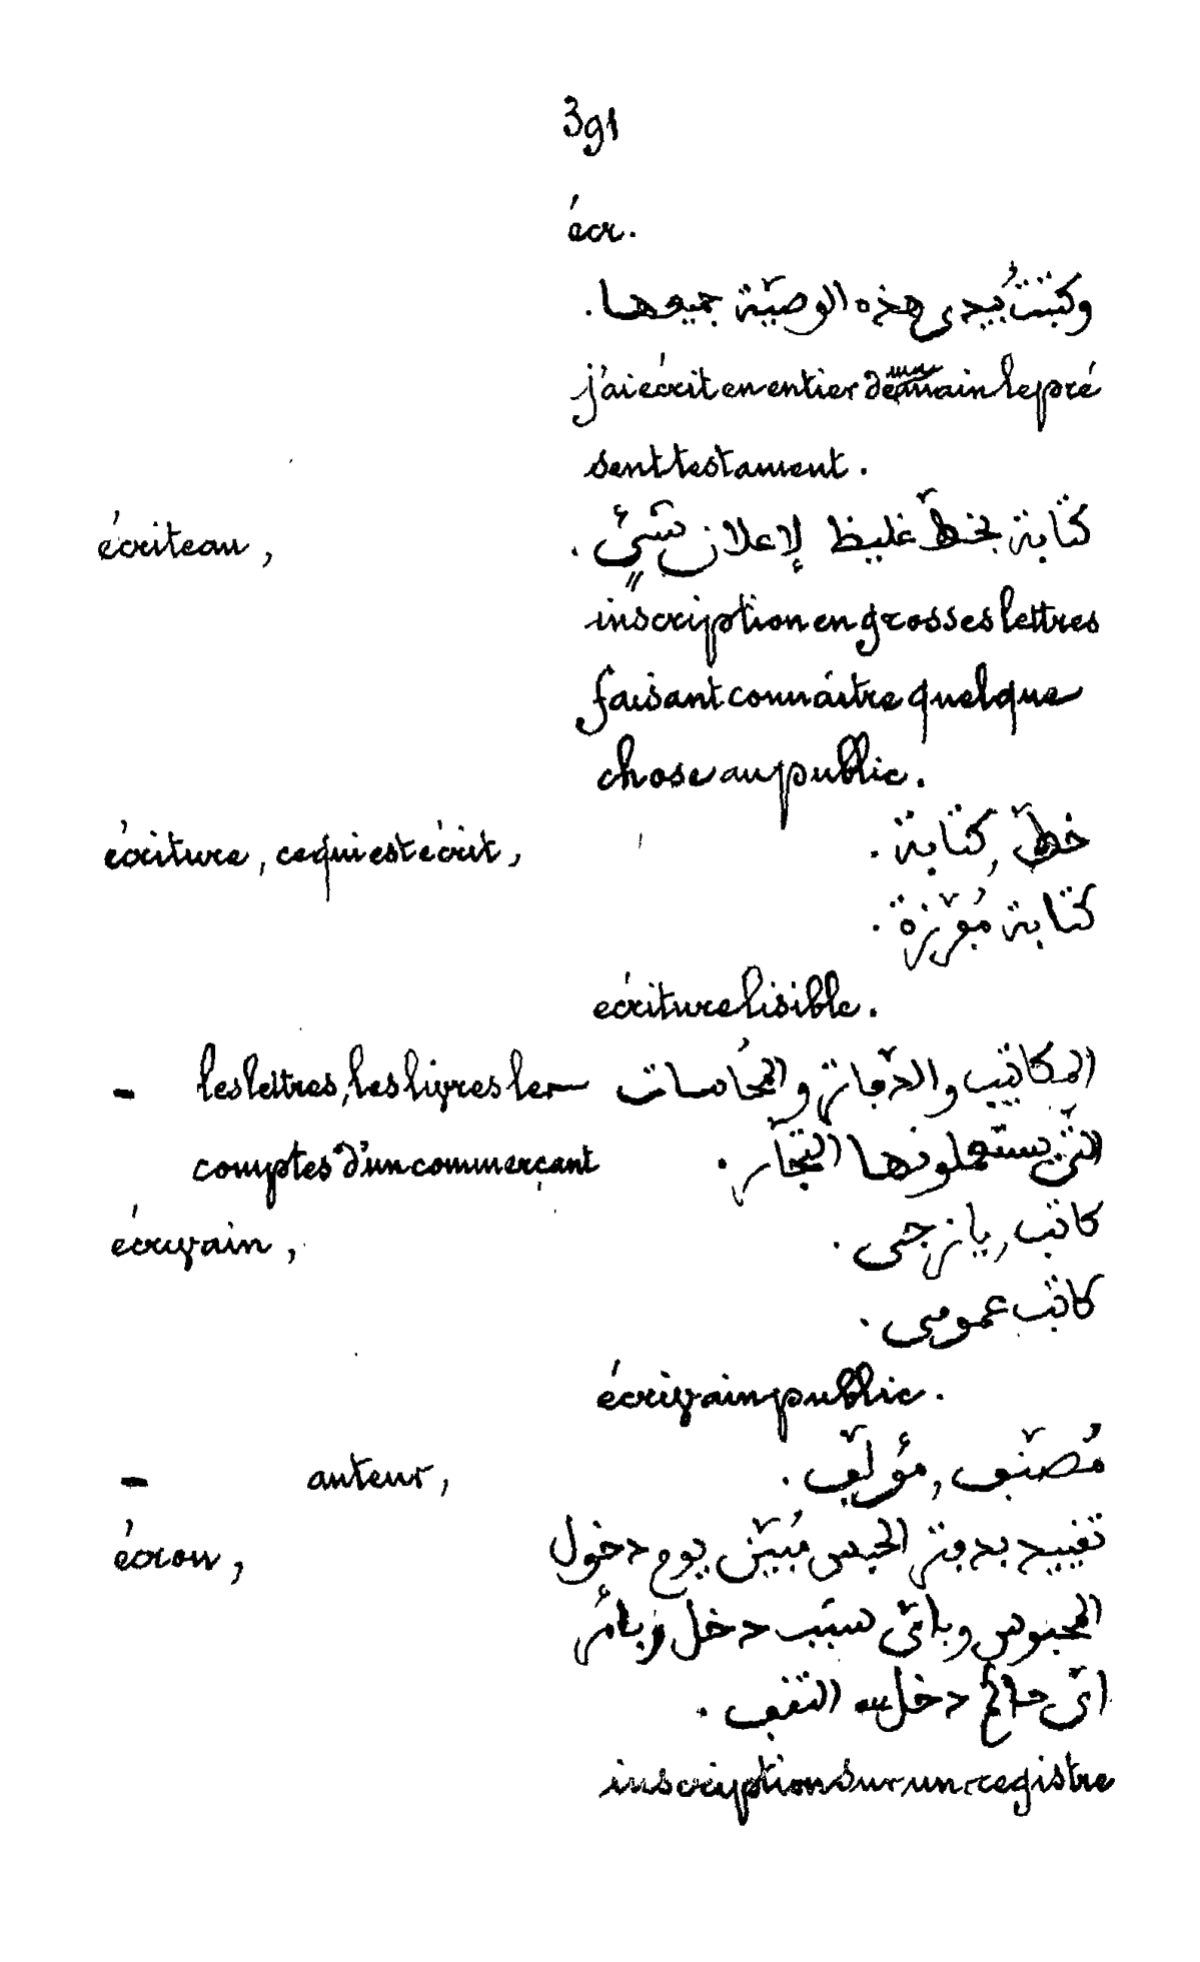 391
écr.
وكتبتُ بيدى هذه الوصيّة جميعها.
j'ai écrit en entier de ma main le pré
sent testament.
écriteau, كتابة بخطّ غليظ لإعلان شئٍ.
inscription en grosses lettres
faisant connaître quelque
chose au public.
écriture, ce qui est écrit, خطّ, كتابة.
كتابة مُبرّزة.
écriture lisible.
- les lettres, les livres les المكاتيب والدّفاتر والمحُاسبات
comptes d'un commerçant التى يستعملونها التّجّار.
écrivain, كاتب, يازجى.
كاتب عمومى.
écrivain public.
- auteur, مُصنّف, مؤلّف.
écrou, تقييد بدفتر الحبس مُبيّن يوم دخول
المحبوس وباىّ سبب دخل وبأمر
اىّ حاكم دخل الثقف.
inscription sur un registre